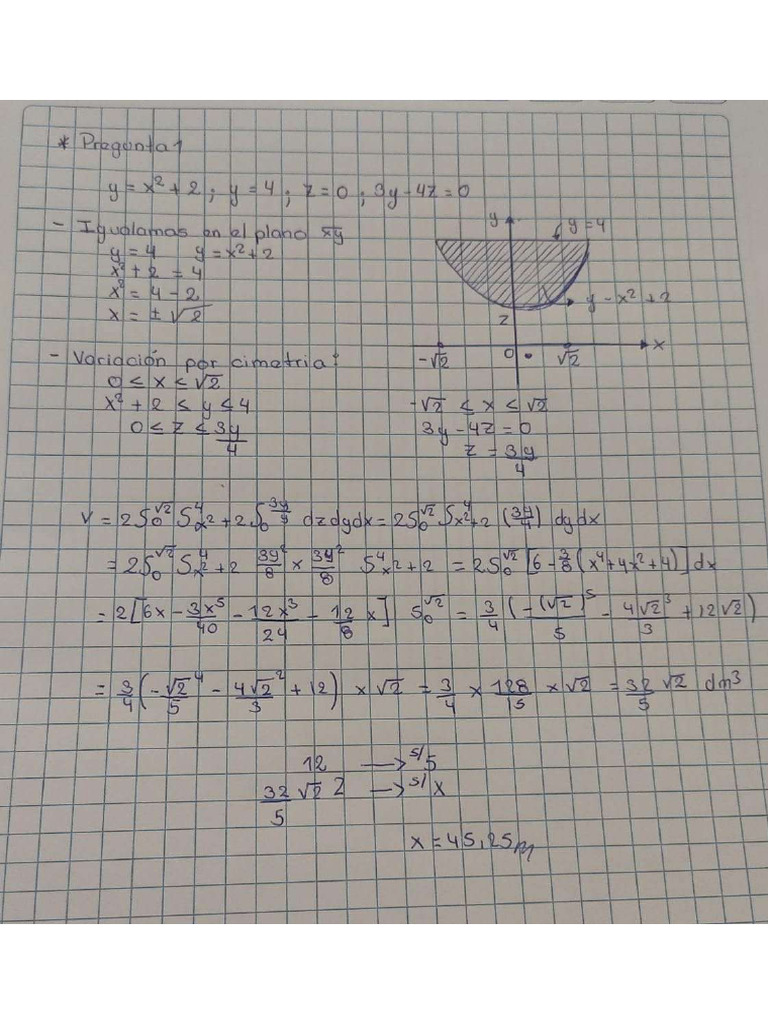 * Pregunta 1
y = x² + 2 ; y = 4 ; z = 0 ; 3y - 4z = 0
- Igualamos en el plano xy
y = 4 y = x² + 2
x² + 2 = 4
x² = 4 - 2
x = ± √2
y
y = 4
y - x² + 2
2
-√2 0 √2 x
- Variación por cimetria:
0 < x < √2
x² + 2 < y < 4
0 < z < 3y/4
-√2 < x < √2
3y - 4z = 0
z = 3y/4
V = 2∫₀^√2 ∫⁴x² + 2 ∫₀^3y/4 dzdydx = 2∫₀^√2 ∫⁴x² + 2 (3y/4) dydx
= 2∫₀^√2 ∫⁴x² + 2 3y²/8 × 3y²/8 ∫⁴x² + 2 = 2∫₀^√2 [6 - 3/8 (x⁴ + 4x² + 4)] dx
= 2[6x - 3x⁵/40 - 12x³/24 - 12/8 x] ∫₀^√2 = 3/4 (-(√2)⁵/5 - 4√2³/3 + 12√2)
= 3/4 (-√2⁴/5 - 4√2²/3 + 12) × √2 = 3/4 × 128/15 × √2 = 32/5 √2 dm³
12 → s/5
32/5 √2 2 → s/ x
x = 45,25